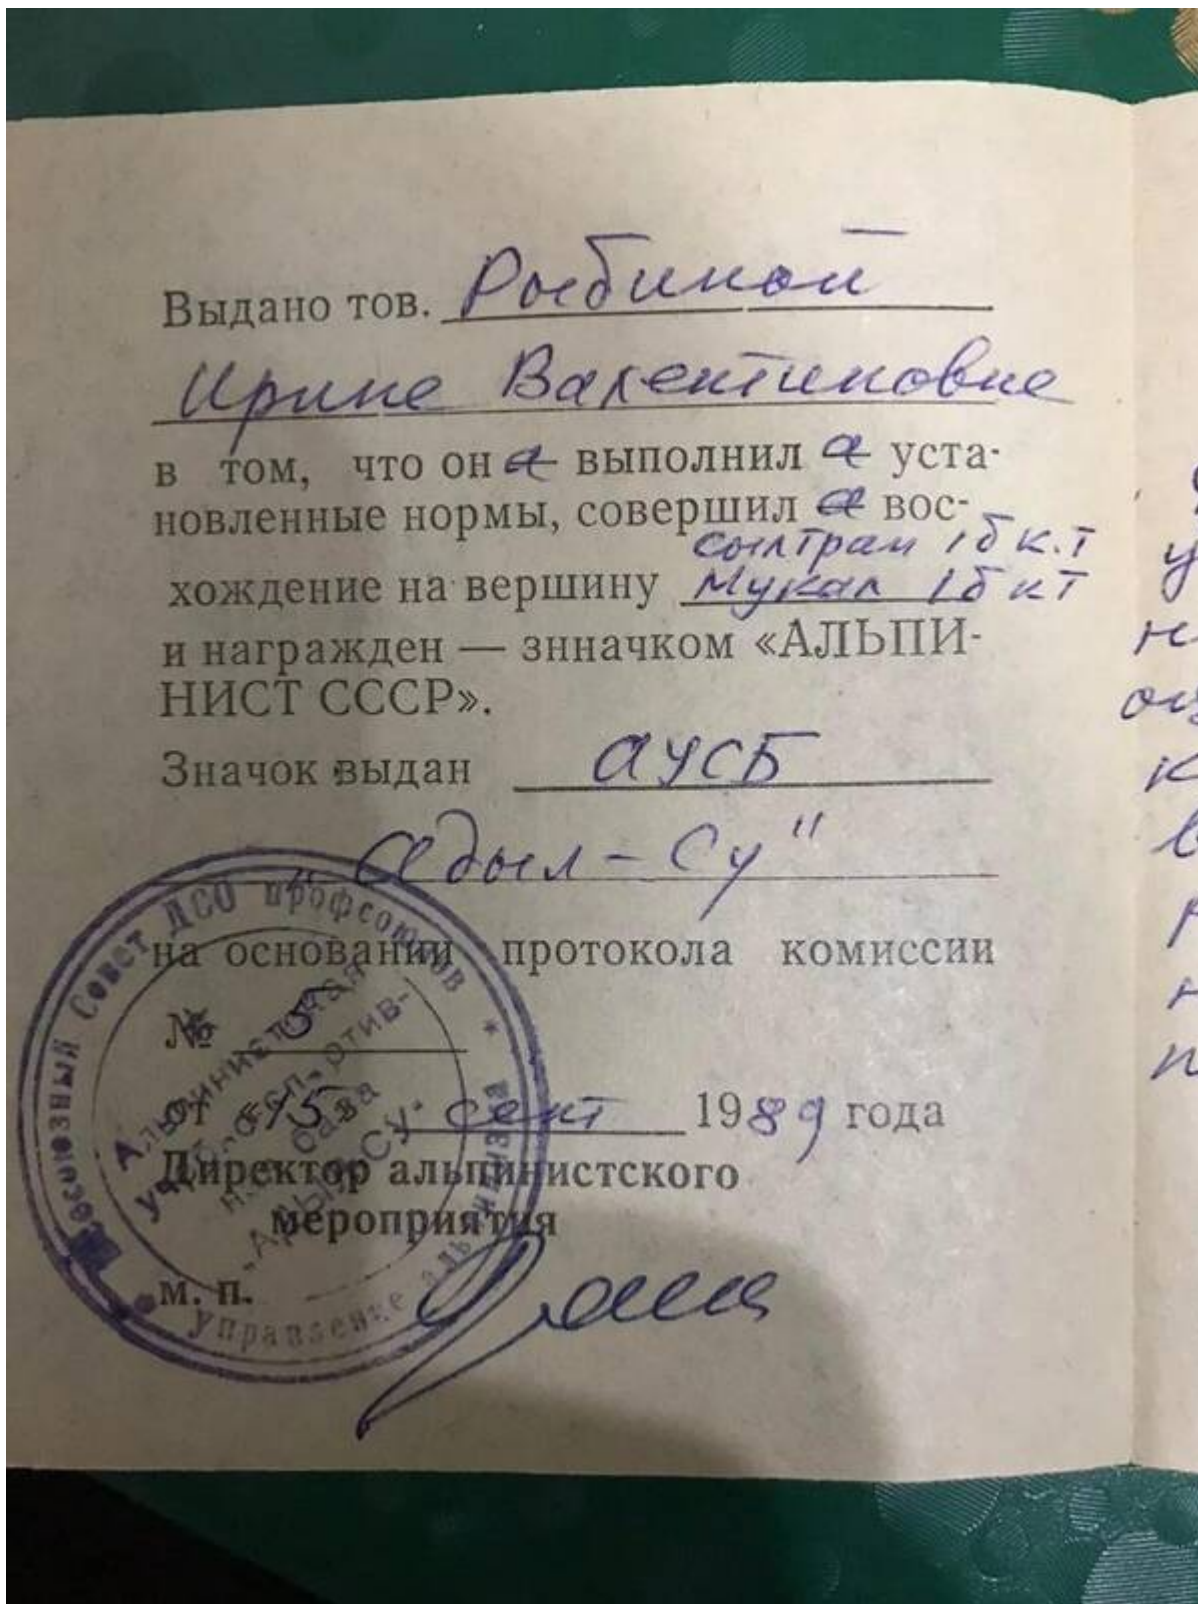 Выдано тов. Рыбиной
Ирине Валентиновне
в том, что он а выполнил а уста-
новленные нормы, совершил а вос-
сылтран 1б к.т
хождение на вершину Мукал 1б кт
и награжден — знначком «АЛЬПИ-
НИСТ СССР».
Значок выдан АУСБ
"Адыл-Су"
на основании протокола комиссии
№ 5
от «15» сент 1989 года
Директор альпинистского
мероприятия
м. п.
Всесоюзный Совет ДСО профсоюзов * Управление альпинизма
Альпинистская
учебно-спортив-
ная база
"АДЫЛ-СУ"